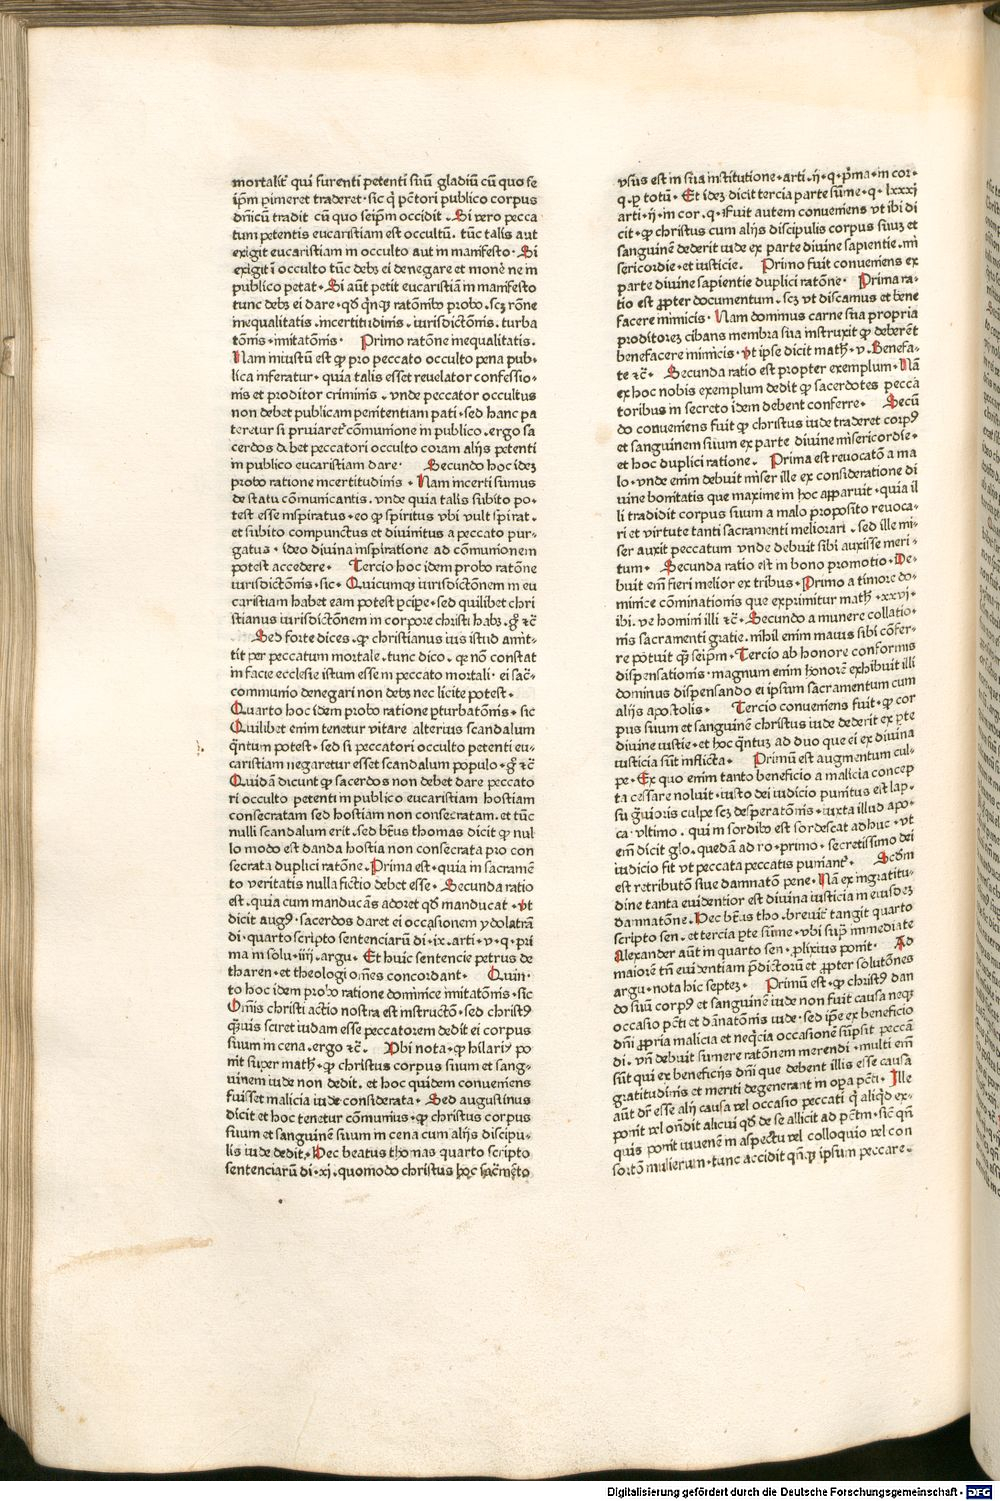 mortalit͛ qui furenti petenti suū gladiū cū quo se
ip̄m ꝑimeret traderet · sic q̇ pc̄tori publico corpus
dn̄icū tradit cū quo seip̄m occidit . Si vero pecca
tum petentis eucaristiam est occultū . tūc talis aut
exigit eucaristiam in occulto aut in manifesto · Si
exigit ī occulto tūc debꝫ ei denegare et monē ne in
publico petat · Si aūt petit eucaristiā in manifesto
tunc debꝫ ei dare · qd̄ qn̄qꝫ ratōnibꝰ probo . scꝫ rōne
inequalitatis . incertitudinis . iurisdictōnis . turba
tōnis · imitatōnis · Primo ratōne inequalitatis .
Nam iniustū est qꝫ pro peccato occulto pena pub⸗
lica inferatur · quia talis esset reuelator confessio⸗
nis et proditor criminis . vnde peccator occultus
non debet publicam penitentiam pati · sed hanc pa
teretur si priuaret͛ cōmunione in publico . ergo sa
cerdos debet peccatori occulto coram alijs petenti
in publico eucaristiam dare · Secundo hoc ideꝫ
probo ratione incertitudinis · Nam incerti sumus
de statu cōmunicantis . vnde quia talis subito po⸗
test esse inspiratus · eo qꝫ spiritus vbi vult spirat .
et subito compunctus et diuinitus a peccato pur⸗
gatus · ideo diuina inspiratione ad cōmunionem
potest accedere · Tercio hoc idem probo ratōne
iurisdictōnis · sic · Quicumqꝫ iurisdictōnem in eu
caristiam habet eam potest ꝑcipe · sed quilibet chri
stianus iurisdictōnem in corpore christi habꝫ . gͦ ⁊c̄
Sed forte dices . qꝫ christianus ius istud amit⸗
tit per peccatum mortale . tunc dico . qꝫ nō constat
in facie ecclesie istum esse in peccato mortali · ei sac̄⸗
communio denegari non debꝫ nec licite potest ·
Quarto hoc idem probo ratione ꝑturbatōnis · sic
Quilibet enim tenetur vitare alterius scandalum
q̄ntum potest · sed si peccatori occulto petenti eu⸗
caristiam negaretur esset scandalum populo · gͦ ⁊c̄
Quidā dicunt qꝫ sacerdos non debet dare peccato
ri occulto petenti in publico eucaristiam hostiam
consecratam sed hostiam non consecratam . et tūc
nulli scandalum erit . sed bt̄us thomas dicit qꝫ nul
lo modo est danda hostia non consecrata pro con
secrata duplici ratōne . Prima est · quia in sacramē
to veritatis nulla fictio debet esse · Secunda ratio
est . quia cum manducās adoret qd̄ manducat · vt
dicit augꝰ · sacerdos daret ei occasionem ydolatrā
di · quarto scripto sentenciarū di · ix . arti · v · q . pri
ma in solu · iiij . argu · Et huic sentencie petrus de
tharen · et theologi om̄es concordant · Quin⸗
to hoc idem probo ratione dominice imitatōnis · sic
Om̄is christi actio nostra est instructō · sed christꝰ
qͣuis sciret iudam esse peccatorem dedit ei corpus
suum in cena . ergo ⁊c̄ . Vbi nota · qꝫ hilariꝰ po
nit super mathꝫ · qꝫ christus corpus suum et sang⸗
uinem iude non dedit . et hoc quidem conueniens
fuisset malicia iude considerata · Sed augustinus
dicit et hoc tenetur cōmunius · qꝫ christus corpus
suum et sanguinē suum in cena cum alijs discipu⸗
lis iude dedit . Hec beatus thomas quarto scripto
sentenciarū di · xj . quomodo christus hoc sac̄mēto
vsus est in sua institutione · arti . ij · q · pͥma · in cor⸗
q . ꝑ totū · Et ideꝫ dicit tercia parte sūme · q · lxxxj
arti · ij · in cor . q . Fuit autem conueniens vt ibi di
cit · qꝫ christus cum alijs discipulis corpus suuꝫ et
sanguinē dederit iude ex parte diuine sapientie . mi
sericordie · et iusticie . Primo fuit conueniens ex
parte diuine sapientie duplici ratōne · Prima ra⸗
tio est ꝓpter documentum . scꝫ vt discamus et bene
facere inimicis · Nam dominus carne sua propria
proditoreꝫ cibans membra sua instruxit qꝫ deberēt
benefacere inimicis · vt ipse dicit mathꝫ · v . Benefa⸗
te ⁊c̄ · Secunda ratio est propter exemplum · Nā
ex hoc nobis exemplum dedit qꝫ sacerdotes pecca
toribus in secreto idem debent conferre · Secū
do conueniens fuit qꝫ christus iude traderet corpꝰ
et sanguinem suum ex parte diuine misericordie ·
et hoc duplici ratione . Prima est reuocatō a ma
lo · vnde enim debuit miser ille ex consideratione di
uine bonitatis que maxime in hoc apparuit · quia il
li tradidit corpus suum a malo proposito reuoca⸗
ri et virtute tanti sacramenti meliorari . sed ille mi⸗
ser auxit peccatum vnde debuit sibi auxisse meri⸗
tum · Secunda ratio est in bono promotio · De⸗
buit em̄ fieri melior ex tribus · Primo a timore do⸗
minice cōminationis que exprimitur mathꝫ · xxvj ·
ibi . ve homini illi ⁊c̄ · Secundo a munere collatio⸗
nis sacramenti gratie . nihil enim maius sibi cōfer⸗
re potuit qͣꝫ seip̄m · Tercio ab honore conformis
dispensationis · magnum enim honorē exhibuit illi
dominus dispensando ei ipsum sacramentum cum
alijs apostolis · Tercio conueniens fuit · qꝫ cor
pus suum et sanguinē christus iude dederit ex ꝑte
diuine iustie · et hoc qͣntuꝫ ad duo que ei ex diuina
iusticia sūt inflicta · Primū est augmentum cul⸗
pe · Ex quo enim tanto beneficio a malicia concep
ta cessare noluit · iusto dei iudicio punitus est lap⸗
su grauioris culpe scꝫ desperatōnis · iuxta illud apo⸗
ca · vltimo . qui in sordibꝰ est sordescat adhuc · vt
em̄ dicit glo . quedā ad ro · primo · secretissimo dei
iudicio fit vt peccata peccatis puniant͛ · Scd̄m
est retributō siue damnatō pene · Nā ex ingratitu⸗
dine tanta euidentior est diuina iusticia in eiusdeꝫ
damnatōne . Hec bt̄us tho . breuit͛ tangit quarto
scripto sen . et tercia ꝑte sūme · vbi supͣ immediate
Alexander aūt in quarto sen · ꝓlixius ponit · Ad
maiorē tn̄ euidentiam p̄dictorū et ꝓpter solutōnes
argu · nota hic septeꝫ · Primū est · qꝫ christꝰ dan
do suū corpꝰ et sanguinē iude non fuit causa neqꝫ
occasio pc̄ti et dānatōnis iude · sed ip̄e ex beneficio
dn̄i ꝓpria malicia et neqͥcia occasionē sūpsit peccā
di . vn̄ debuit sumere ratōnem merendi · multi em̄
sūt qui ex beneficijs dn̄i que debent illis esse causa
gratitudinis et meriti degenerant in oꝑa pc̄ti · Ille
aūt dr̄ esse alij causa vel occasio peccati qͥ aliqͥd ex⸗
ponit vel on̄dit alicui qd̄ de se allicit ad pc̄tm · sic qn̄
quis ponit iuuenē in aspectu vel colloquio vel con
sortō mulierum · tunc accidit qn̄qꝫ ipsum peccare ·
Digitalisierung gefördert durch die Deutsche Forschungsgemeinschaft - DFG